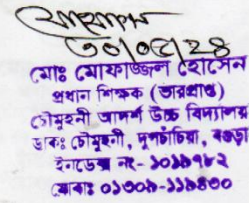 ৩০/০৫/২৪
মোঃ মোফাজ্জল হোসেন
প্রধান শিক্ষক (ভারপ্রাপ্ত)
চৌমুহনী আদর্শ উচ্চ বিদ্যালয়
ডাকঃ চৌমুহনী, দুপচাঁচিয়া, বগুড়া
ইনডেক্স নং- ১০১৯৭৮২
মোবাঃ ০১৩০৯-১১৯৪৩০